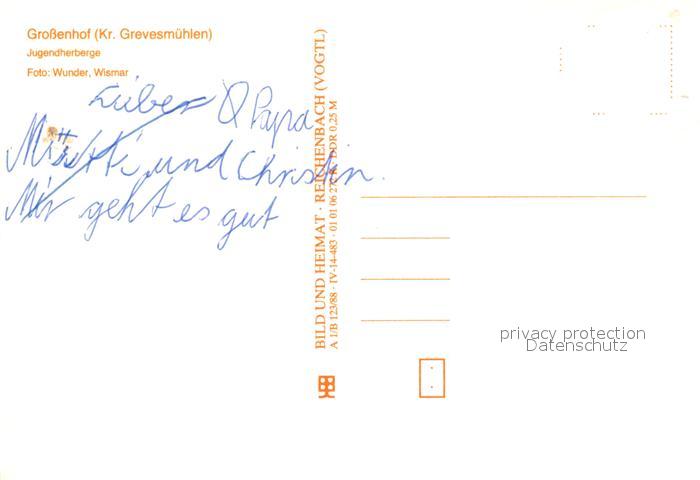 Großenhof (Kr. Grevesmühlen)
Jugendherberge
Foto: Wunder, Wismar
Lieber Papa
Mutti und Christin.
Mir geht es gut
BILD UND HEIMAT · REICHENBACH (VOGTL)
A 1/B 123/88 · IV-14-483 · 01 01 06 DDR 0,25 M
privacy protection
Datenschutz